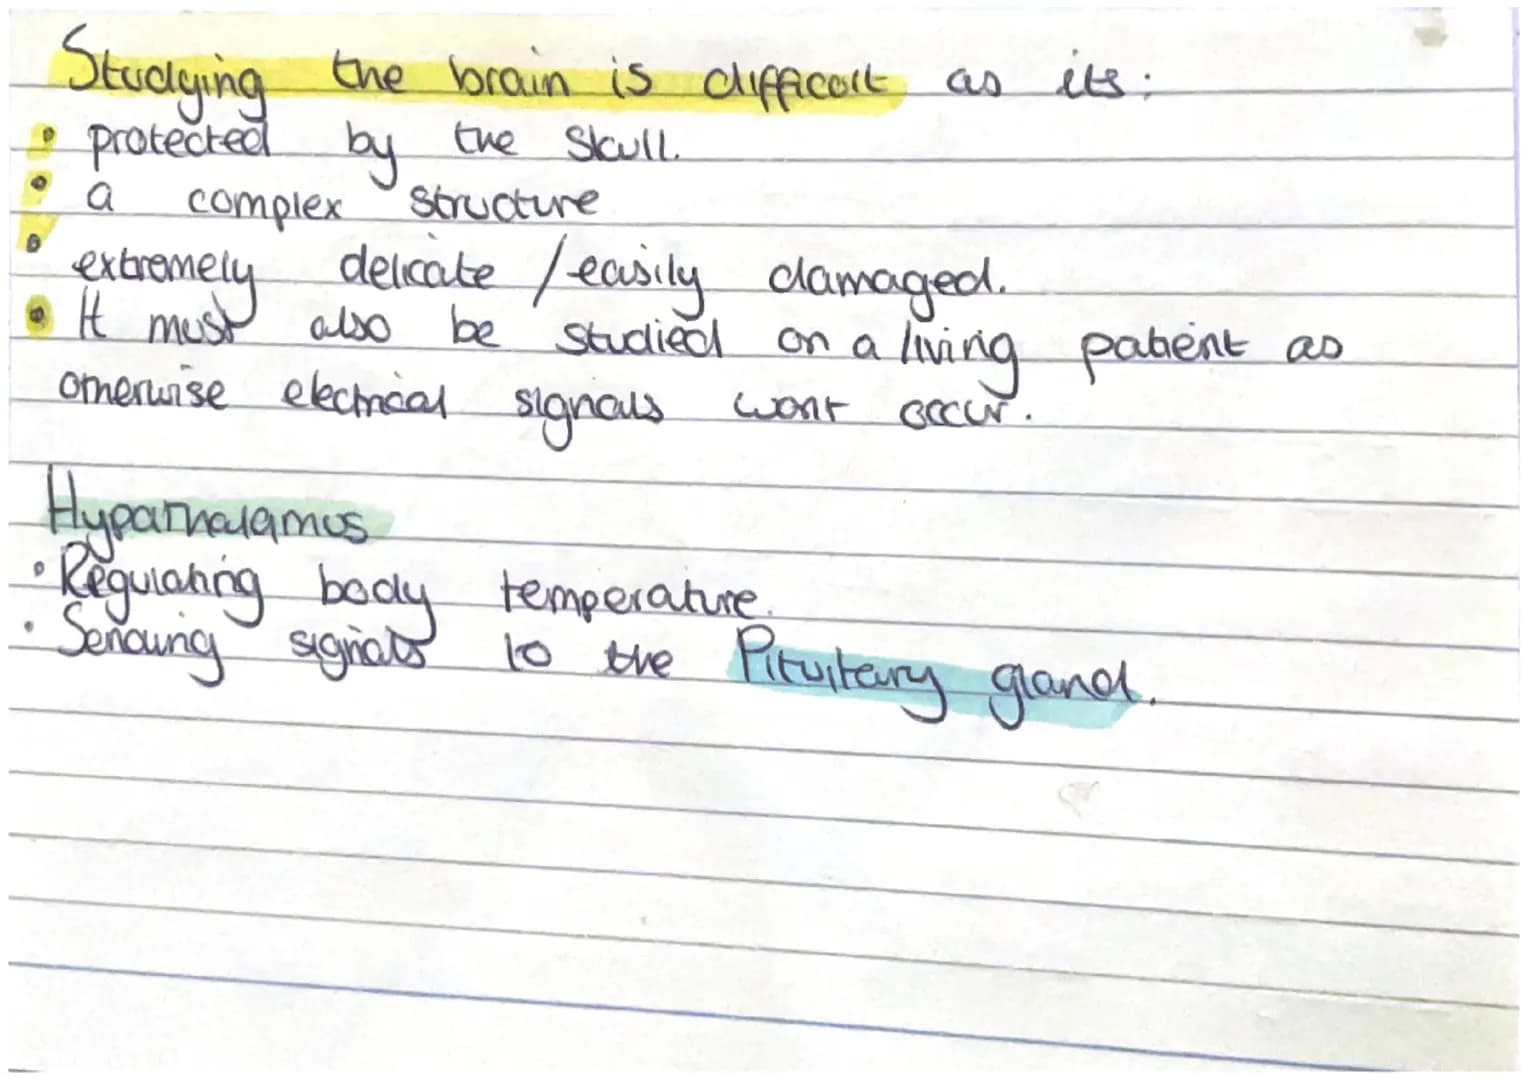 Studying the brain is difficult as its:
• protected by the skull.
• a complex structure
• extremely delicate / easily damaged.
• It must also be studied on a living patient as
otherwise electrical signals wont occur.
Hypothalamus
• Regulating body temperature.
• Sending signals to the Pituitary gland.